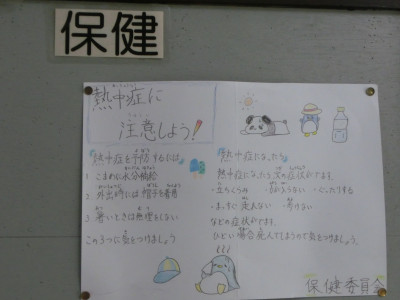 保健
熱中症に
注意しよう!
熱中症を予防するには
1. こまめに水分補給
2. 外出時には帽子を着用
3. 暑いときは無理をしない
この3つに気をつけましょう
熱中症になったら
熱中症になったら次の症状がでます。
・立ちくらみ
・ぐったりする
・まっすぐ走れない ・歩けない
などの症状がでます。
ひどい場合死んでしまうので気をつけましょう。
保健委員会